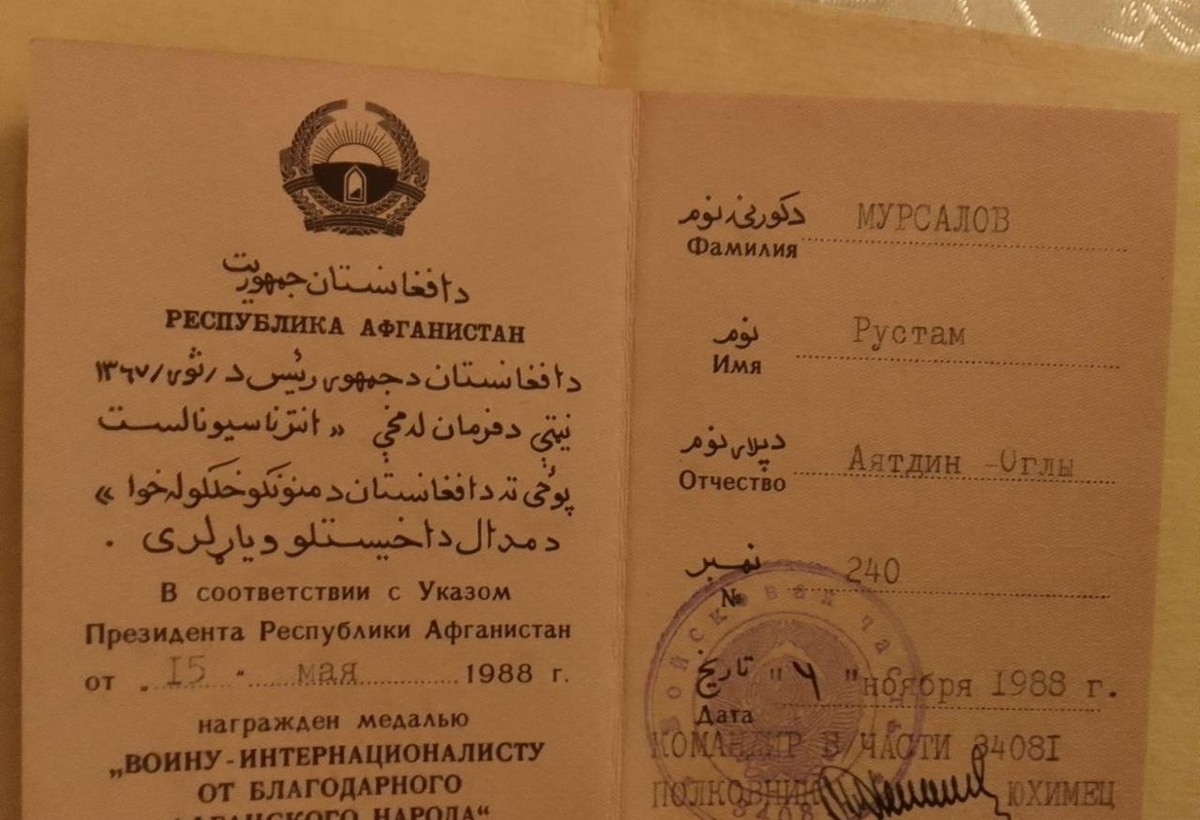 دافغانستان جمهوریت
РЕСПУБЛИКА АФГАНИСТАН
دافغانستان دجمهوری رئیس د /ثور/ ۱۳۶۷
نیټې دفرمان له مخې « انترناسیونالست
پوځی ته دافغانستان دمننوکو خلکو له خوا »
دمدال داخیستلو ویاړلری .
В соответствии с Указом
Президента Республики Афганистан
от „15" мая 1988 г.
награжден медалью
„ВОИНУ-ИНТЕРНАЦИОНАЛИСТУ
ОТ БЛАГОДАРНОГО
АФГАНСКОГО НАРОДА“
دکورنۍ نوم
Фамилия МУРСАЛОВ
نوم
Имя Рустам
دپلار نوم
Отчество Аятдин -Оглы
نمبر
№ 240
تاریخ
Дата " " ноября 1988 г.
КОМАНДИР В/ЧАСТИ 34081
ПОЛКОВНИК ЮХИМЕЦ
Войсковая часть